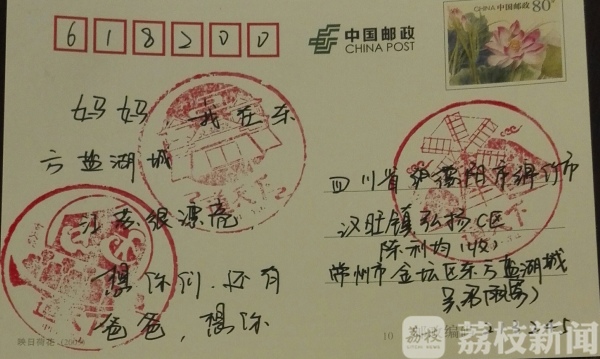 618200
中国邮政
CHINA POST
CHINA 中国邮政
80分
妈妈，我在东
方盐湖城
江苏很漂亮
想你们，还有
爸爸，想你
四川省德阳市绵竹市
汉旺镇弘扬C区
陈利均（收）
常州市金坛区东方盐湖城
映日荷花
荔枝
荔枝新闻